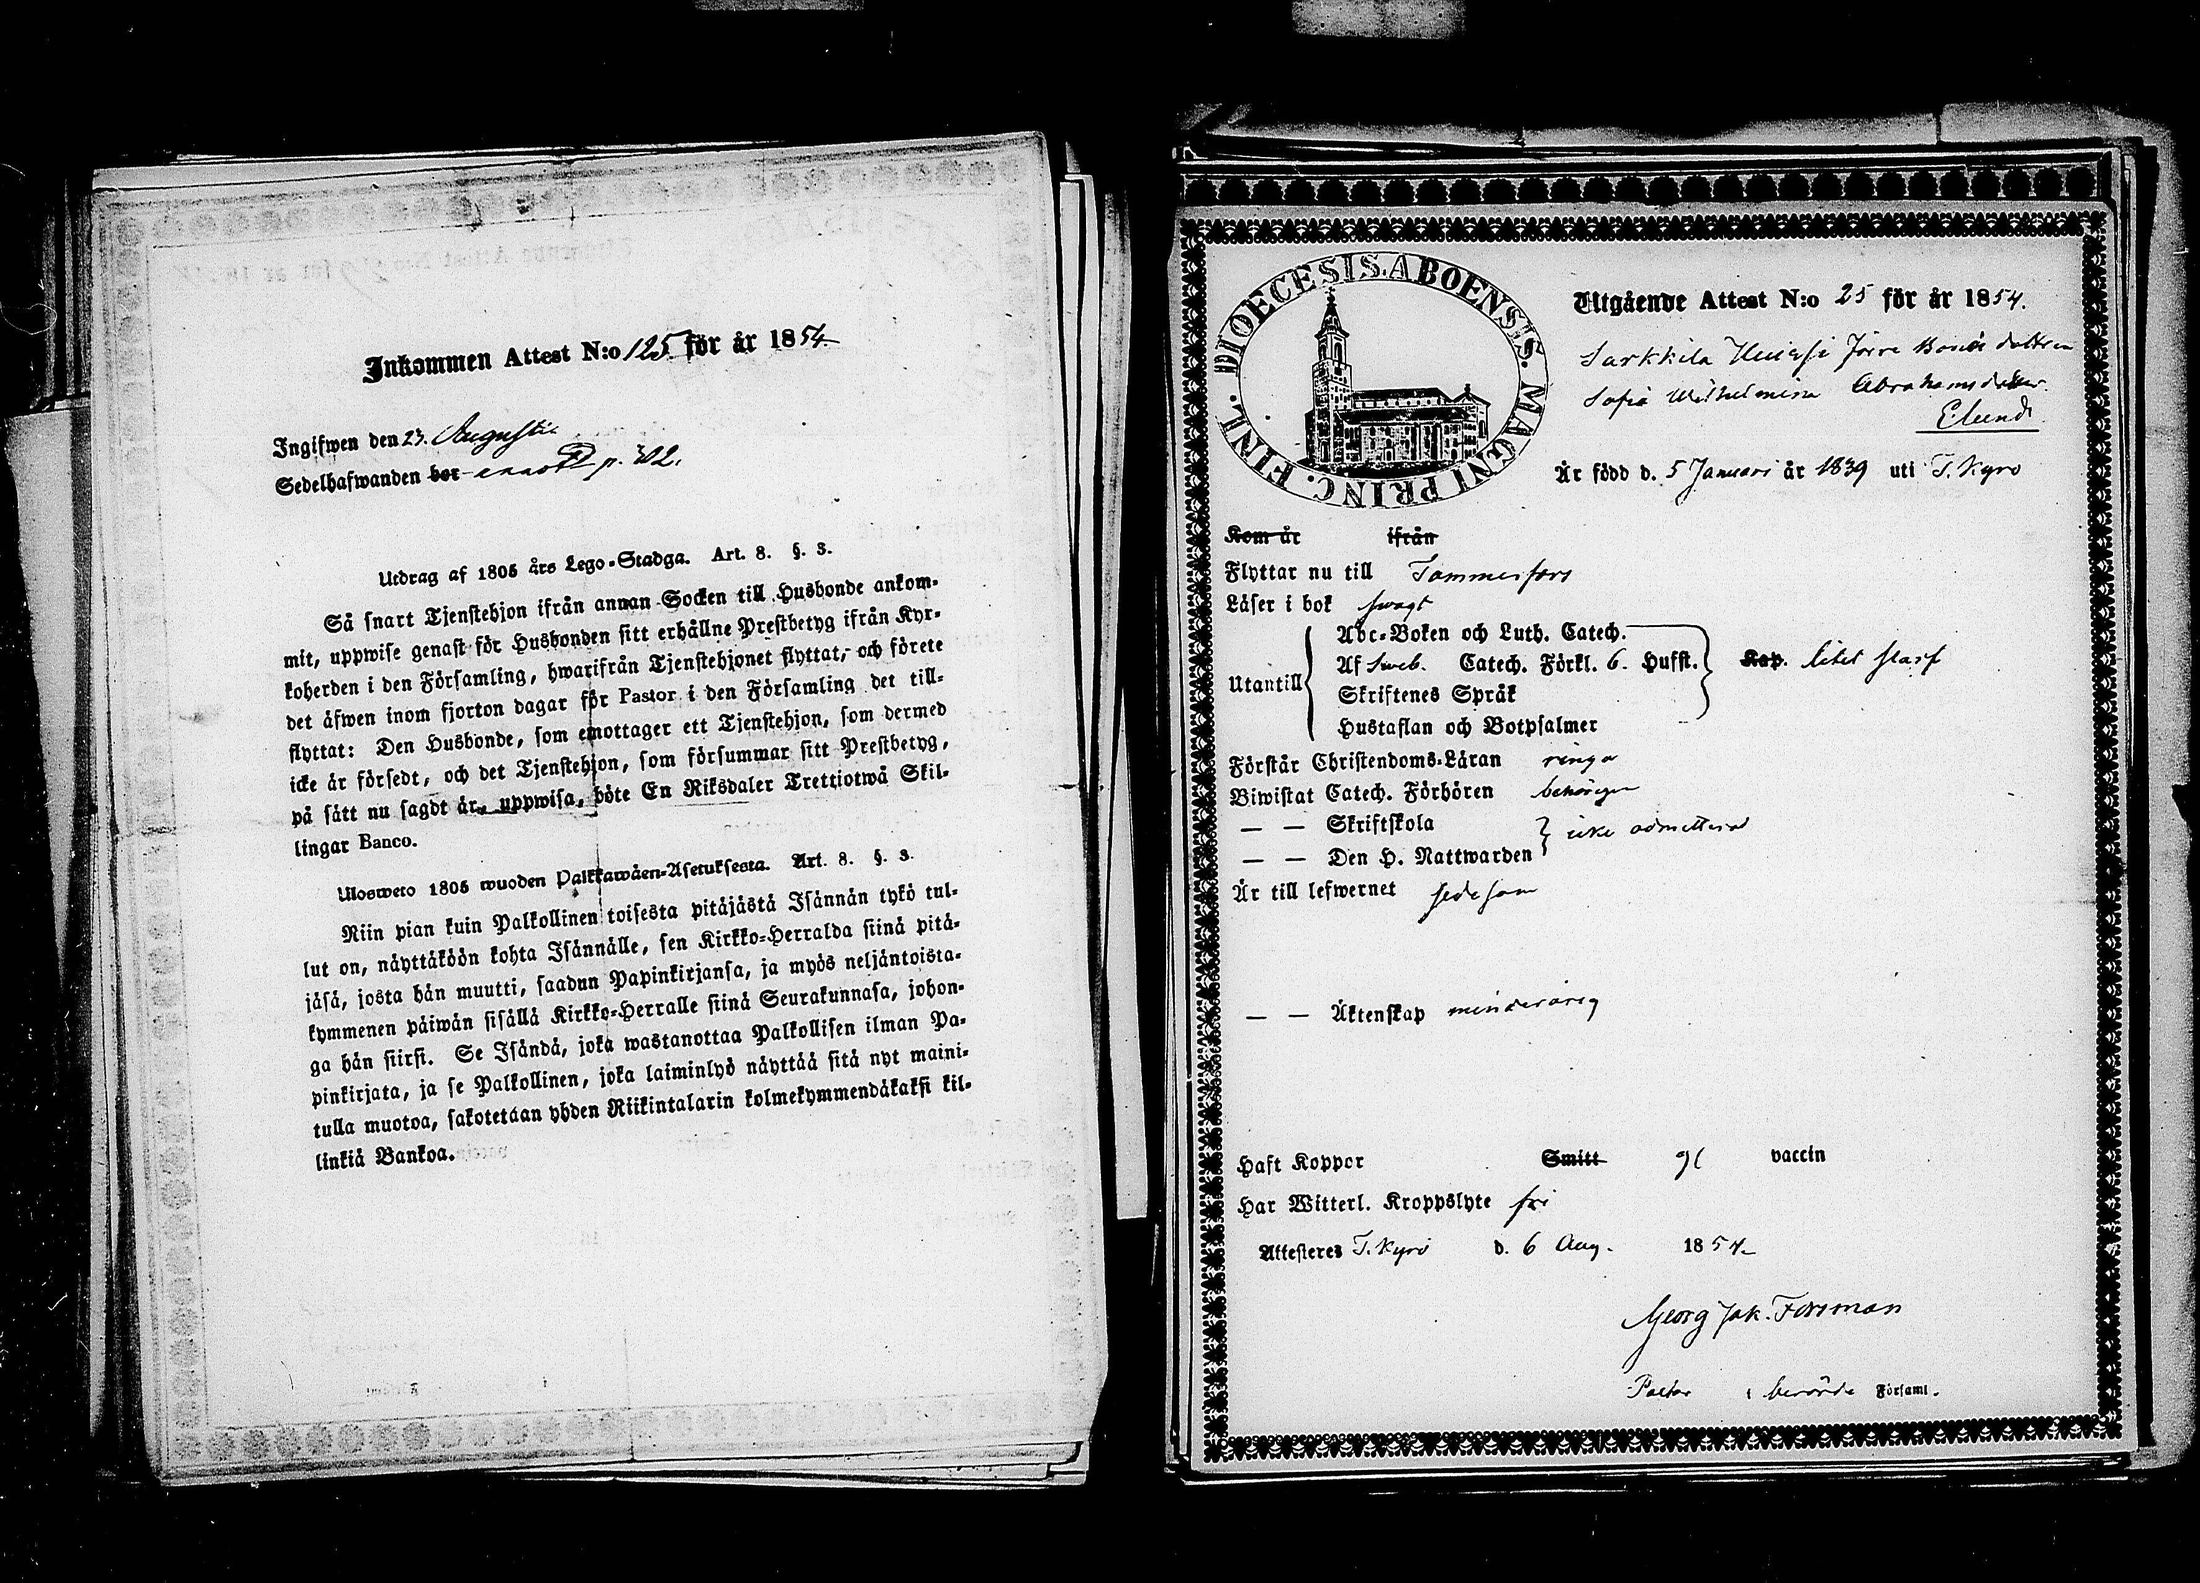 Inkommen Attest N:o 125 för år 1854
Ingifwen den 23. Augusti
Sedelhafwanden bor annot p. 702.
Utdrag af 1805 års Lego-Stadga. Art. 8. §. 3.
Så snart Tjenstehjon ifrån annan Socken till Husbonde ankom-
mit, uppwise genast för Husbonden sitt erhållne Prestbetyg ifrån Kyr-
koherden i den Församling, hwarifrån Tjenstehjonet flyttat, och förete
det äfwen inom fjorton dagar för Pastor i den Församling det till-
flyttat: Den Husbonde, som emottager ett Tjenstehjon, som dermed
icke är försedt, och det Tjenstehjon, som försummar sitt Prestbetyg,
på sätt nu sagdt är, uppwisa, böte En Riksdaler Trettiotwå Skil-
lingar Banco.
Ulosweto 1805 wuoden Palkkawäen-Asetuksesta. Art. 8. §. 3.
Niin pian kuin Palkollinen toisesta pitäjästä Isännän tykö tul-
lut on, näyttäköön kohta Isännälle, sen Kirkko-Herralda siinä pitä-
jäsä, josta hän muutti, saadun Papinkirjansa, ja myös neljäntoista-
kymmenen päiwän sisällä Kirkko-Herralle siinä Seurakunnasa, johon-
ga hän siirsi. Se Isändä, joka wastanottaa Palkollisen ilman Pa-
pinkirjata, ja se Palkollinen, joka laiminlyö näyttää sitä nyt maini-
tulla muotoa, sakotetaan yhden Riikintalarin kolmekymmendäkaksi kil-
linkiä Bankoa.
DIOECESIS. ABOENSIS. MAGNI PRINC. FINL.
Utgående Attest N:o 25 för år 1854.
Sarkkila Bonde dottren
Sofia Wilhelmina Abrahamsdotter
Elund
Är född d. 5 Januari år 1839 uti T. Kyro
Kom år ifrån
Flyttar nu till Tammerfors
Läser i bok swagt
Utantill
Abc-Boken och Luth. Catech.
Af Sweb. Catech. Förkl. 6. Hufst. Kap. litet slarf
Skriftenes Språk
Hustaflan och Botpsalmer
Förstår Christendoms-Läran ringa
Biwistat Catech. Förhören behörigen
— — Skriftskola
— — Den H. Nattwarden icke admitterad
Är till lefwernet sedesam
— — Äktenskap minderårig
Haft Koppor Smitt gl vaccin
Har Witterl. Kroppslyte fri
Attesteres T. Kyro d. 6 Aug. 1854
Georg Jak. Forsman
Pastor i berörde Församl.